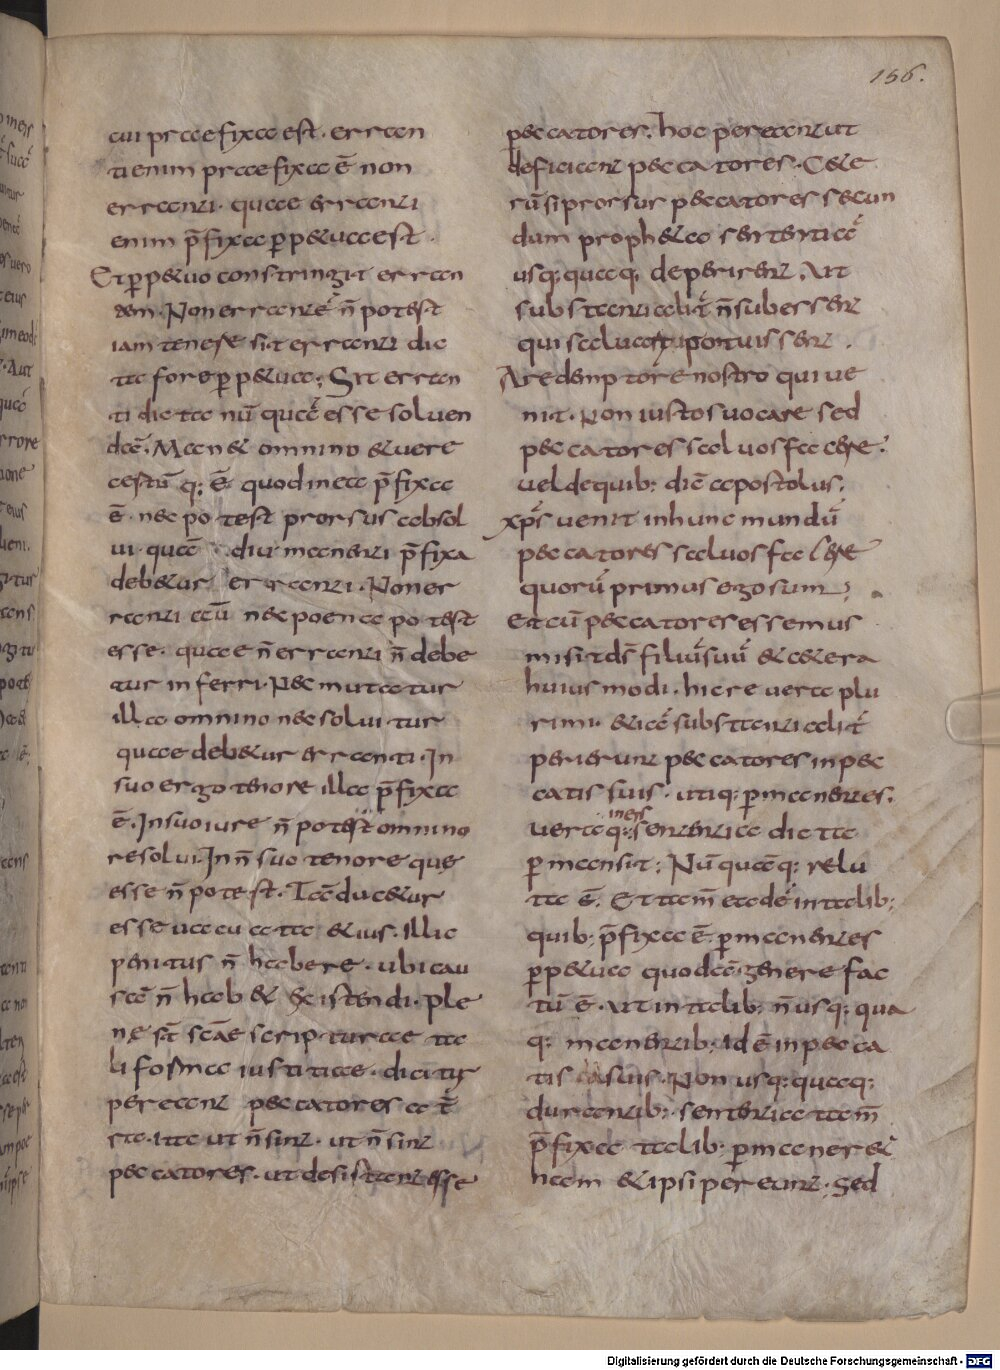 156.
cui praefixa est. erran
ti enim praefixa ē non
erranti. quae erranti
enim p̄fixa ꝑpetua est.
Et ꝑpetuo constringit erran
tem. Non errante᷒ n̄ potest
iam tenere sit erranti dic
ta fore ꝑpetua; Sit erran
ti dicta nū quā esse soluen
da. Manet omnino et uere
aestū q: ē quod in ea p̄fixa
ē. nec potest prorsus absol
ui quā diu manenti p̄fixa
debetur erranti. Non er
ranti ecū nec poena potest
esse. quae n̄ erranti n̄ debe
tur inferri. Nec mutatur
illa omnino nec soluitur
quae debetur erranti. In
suo ergo tenore illa p̄fixa
ē. In suo iure n̄ potest omnino
resolui. In n̄ suo tenore que
esse n̄ potest. Iā ducetur
esse uacua a eius. illic
penitus n̄ habere. ubi cau
sā n̄ habet existendi. ple
nę st̄ scāe scripturae ta
li forma iustitiae. dicitur
pereant peccatores a t̄
ra. ita ut n̄ sint. ut n̄ sint
peccatores. ut desistant esse
peccatores. hoc pereant ut
deficiant peccatores. Cete
rū si prorsus peccatores secun
dum prophetae sententiā
usq; quaq; deperirent. Aut
substantialit̄ n̄ subessent
qui saluari potuissent.
A redemptore nostro qui ue
nit. Non iustos uocare sed
peccatores saluos facere.
uel de quib; dic̄ apostolus.
xp̄s uenit in hunc mundū
peccatores saluos facere
quorū primus ego sum;
Et cū peccatores essemus
misit ds̄ filiū suū et cetera
huius modi. hic reuerta plu
rimi. et iā substantialit̄
perierunt peccatores in pec
catis suis. utiq: ꝑmanentes.
uertaq: inens sententia dicta
ꝑmansit; Nū quāq: relu
ta ē. Et tam̄ eadē in talib;
quib; p̄fixa ē ꝑmanentes
ꝑpetua quodā genere fac
tū ē. Aut in talib; n̄ usq; qua
q: manentib; id ē in pecca
tis suis. Non usq: quaq:
durantib; sententia tam̄
p̄fixa talib; ꝑmaneret
nam et ipsi pereunt. Sed
Digitalisierung gefördert durch die Deutsche Forschungsgemeinschaft - DFG